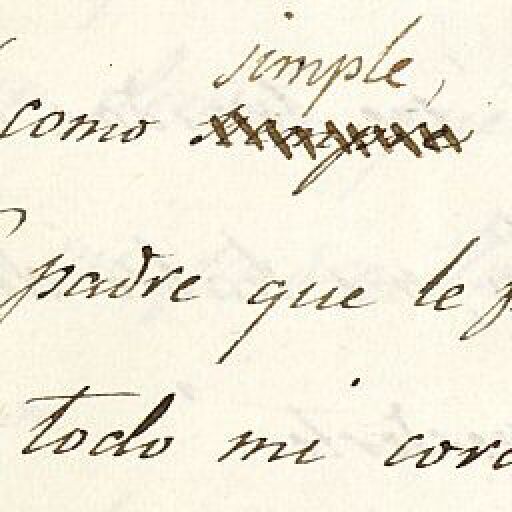 simple,
como
padre que le
todo mi